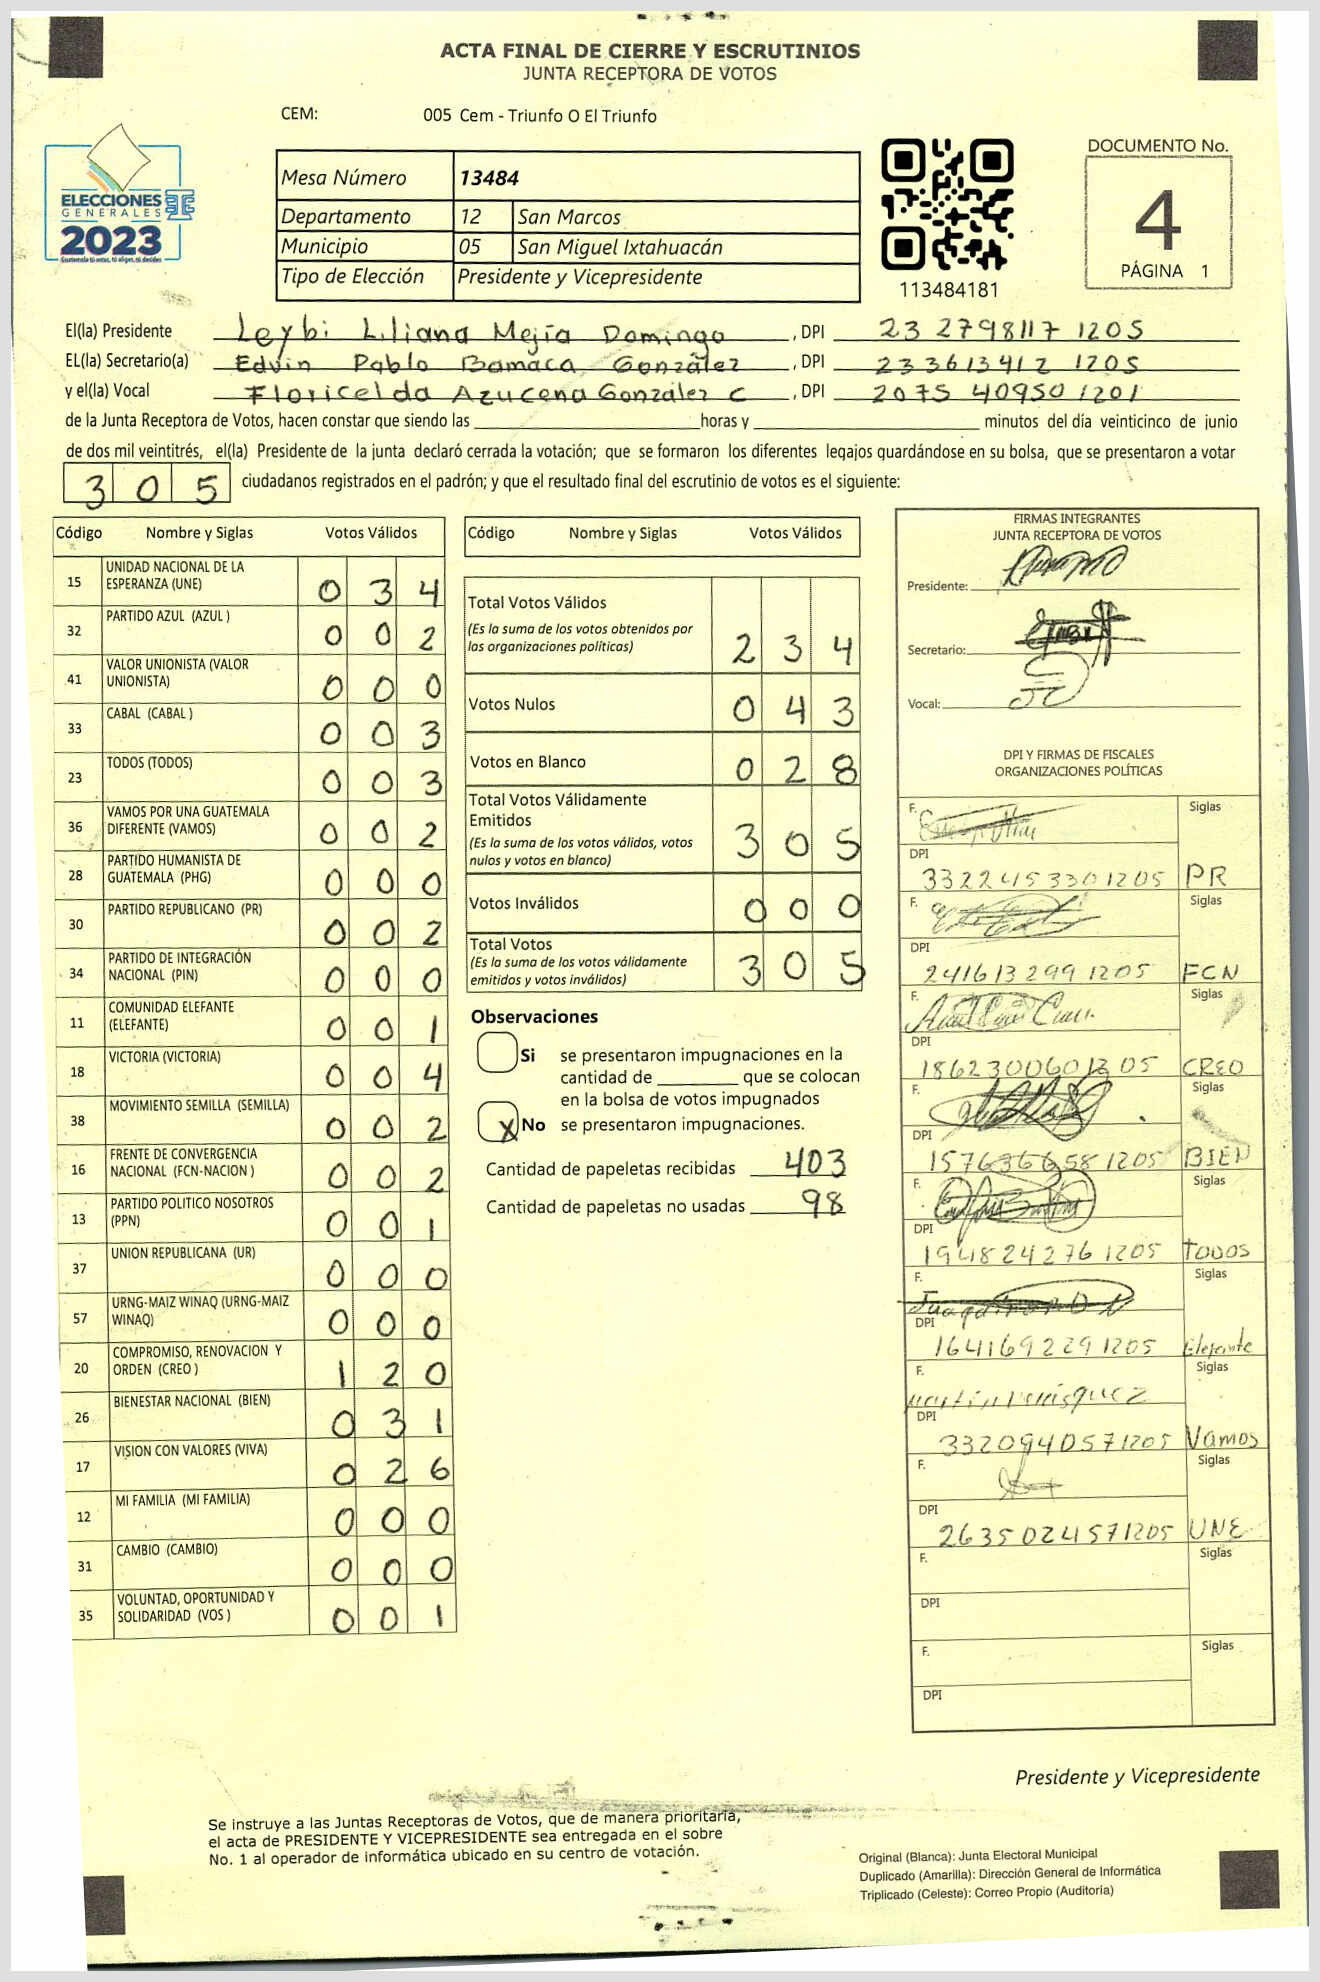 ACTA FINAL DE CIERRE Y ESCRUTINIOS
JUNTA RECEPTORA DE VOTOS
CEM: 005 Cem - Triunfo O El Triunfo
ELECCIONES
GENERALES
2023
Mesa Número 13484
Departamento 12 San Marcos
Municipio 05 San Miguel Ixtahuacán
Tipo de Elección Presidente y Vicepresidente
113484181
DOCUMENTO No.
4
PÁGINA 1
El(la) Presidente Leybi Liliana Mejía Domingo , DPI 23 2798117 1205
EL(la) Secretario(a) Edvin Pablo Bamaca González , DPI 233613412 1205
y el(la) Vocal Floricelda Azucena González C , DPI 2075 40950 1201
de la Junta Receptora de Votos, hacen constar que siendo las horas y minutos del día veinticinco de junio
de dos mil veintitrés, el(la) Presidente de la junta declaró cerrada la votación; que se formaron los diferentes legajos guardándose en su bolsa, que se presentaron a votar
305 ciudadanos registrados en el padrón; y que el resultado final del escrutinio de votos es el siguiente:
Código Nombre y Siglas Votos Válidos
15 UNIDAD NACIONAL DE LA
ESPERANZA (UNE) 0 3 4
32 PARTIDO AZUL (AZUL ) 0 0 2
41 VALOR UNIONISTA (VALOR
UNIONISTA) 0 0 0
33 CABAL (CABAL ) 0 0 3
23 TODOS (TODOS) 0 0 3
36 VAMOS POR UNA GUATEMALA
DIFERENTE (VAMOS) 0 0 2
28 PARTIDO HUMANISTA DE
GUATEMALA (PHG) 0 0 0
30 PARTIDO REPUBLICANO (PR) 0 0 2
34 PARTIDO DE INTEGRACIÓN
NACIONAL (PIN) 0 0 0
11 COMUNIDAD ELEFANTE
(ELEFANTE) 0 0 1
18 VICTORIA (VICTORIA) 0 0 4
38 MOVIMIENTO SEMILLA (SEMILLA) 0 0 2
16 FRENTE DE CONVERGENCIA
NACIONAL (FCN-NACION ) 0 0 2
13 PARTIDO POLITICO NOSOTROS
(PPN) 0 0 1
37 UNION REPUBLICANA (UR) 0 0 0
57 URNG-MAIZ WINAQ (URNG-MAIZ
WINAQ) 0 0 0
20 COMPROMISO, RENOVACION Y
ORDEN (CREO ) 1 2 0
26 BIENESTAR NACIONAL (BIEN) 0 3 1
17 VISION CON VALORES (VIVA) 0 2 6
12 MI FAMILIA (MI FAMILIA) 0 0 0
31 CAMBIO (CAMBIO) 0 0 0
35 VOLUNTAD, OPORTUNIDAD Y
SOLIDARIDAD (VOS ) 0 0 1
Código Nombre y Siglas Votos Válidos
Total Votos Válidos
(Es la suma de los votos obtenidos por
las organizaciones políticas) 2 3 4
Votos Nulos 0 4 3
Votos en Blanco 0 2 8
Total Votos Válidamente
Emitidos
(Es la suma de los votos válidos, votos
nulos y votos en blanco) 3 0 5
Votos Inválidos 0 0 0
Total Votos
(Es la suma de los votos válidamente
emitidos y votos inválidos) 3 0 5
Observaciones
Si se presentaron impugnaciones en la
cantidad de que se colocan
en la bolsa de votos impugnados
X No se presentaron impugnaciones.
Cantidad de papeletas recibidas 403
Cantidad de papeletas no usadas 98
FIRMAS INTEGRANTES
JUNTA RECEPTORA DE VOTOS
Presidente:
Secretario:
Vocal:
DPI Y FIRMAS DE FISCALES
ORGANIZACIONES POLÍTICAS
F. Siglas
DPI
3322453301205 PR
F. Siglas
DPI
241613299 1205 FCN
F. Siglas
DPI
1862300601205 CREO
F. Siglas
DPI
1576366581205 BIEN
F. Siglas
DPI
1948242761205 TODOS
F. Siglas
DPI
1641692291205 Elefante
F. Siglas
DPI
3320940571205 Vamos
F. Siglas
DPI
2635024571205 UNE
F. Siglas
DPI
F. Siglas
DPI
Presidente y Vicepresidente
Se instruye a las Juntas Receptoras de Votos, que de manera prioritaria,
el acta de PRESIDENTE Y VICEPRESIDENTE sea entregada en el sobre
No. 1 al operador de informática ubicado en su centro de votación.
Original (Blanca): Junta Electoral Municipal
Duplicado (Amarilla): Dirección General de Informática
Triplicado (Celeste): Correo Propio (Auditoría)